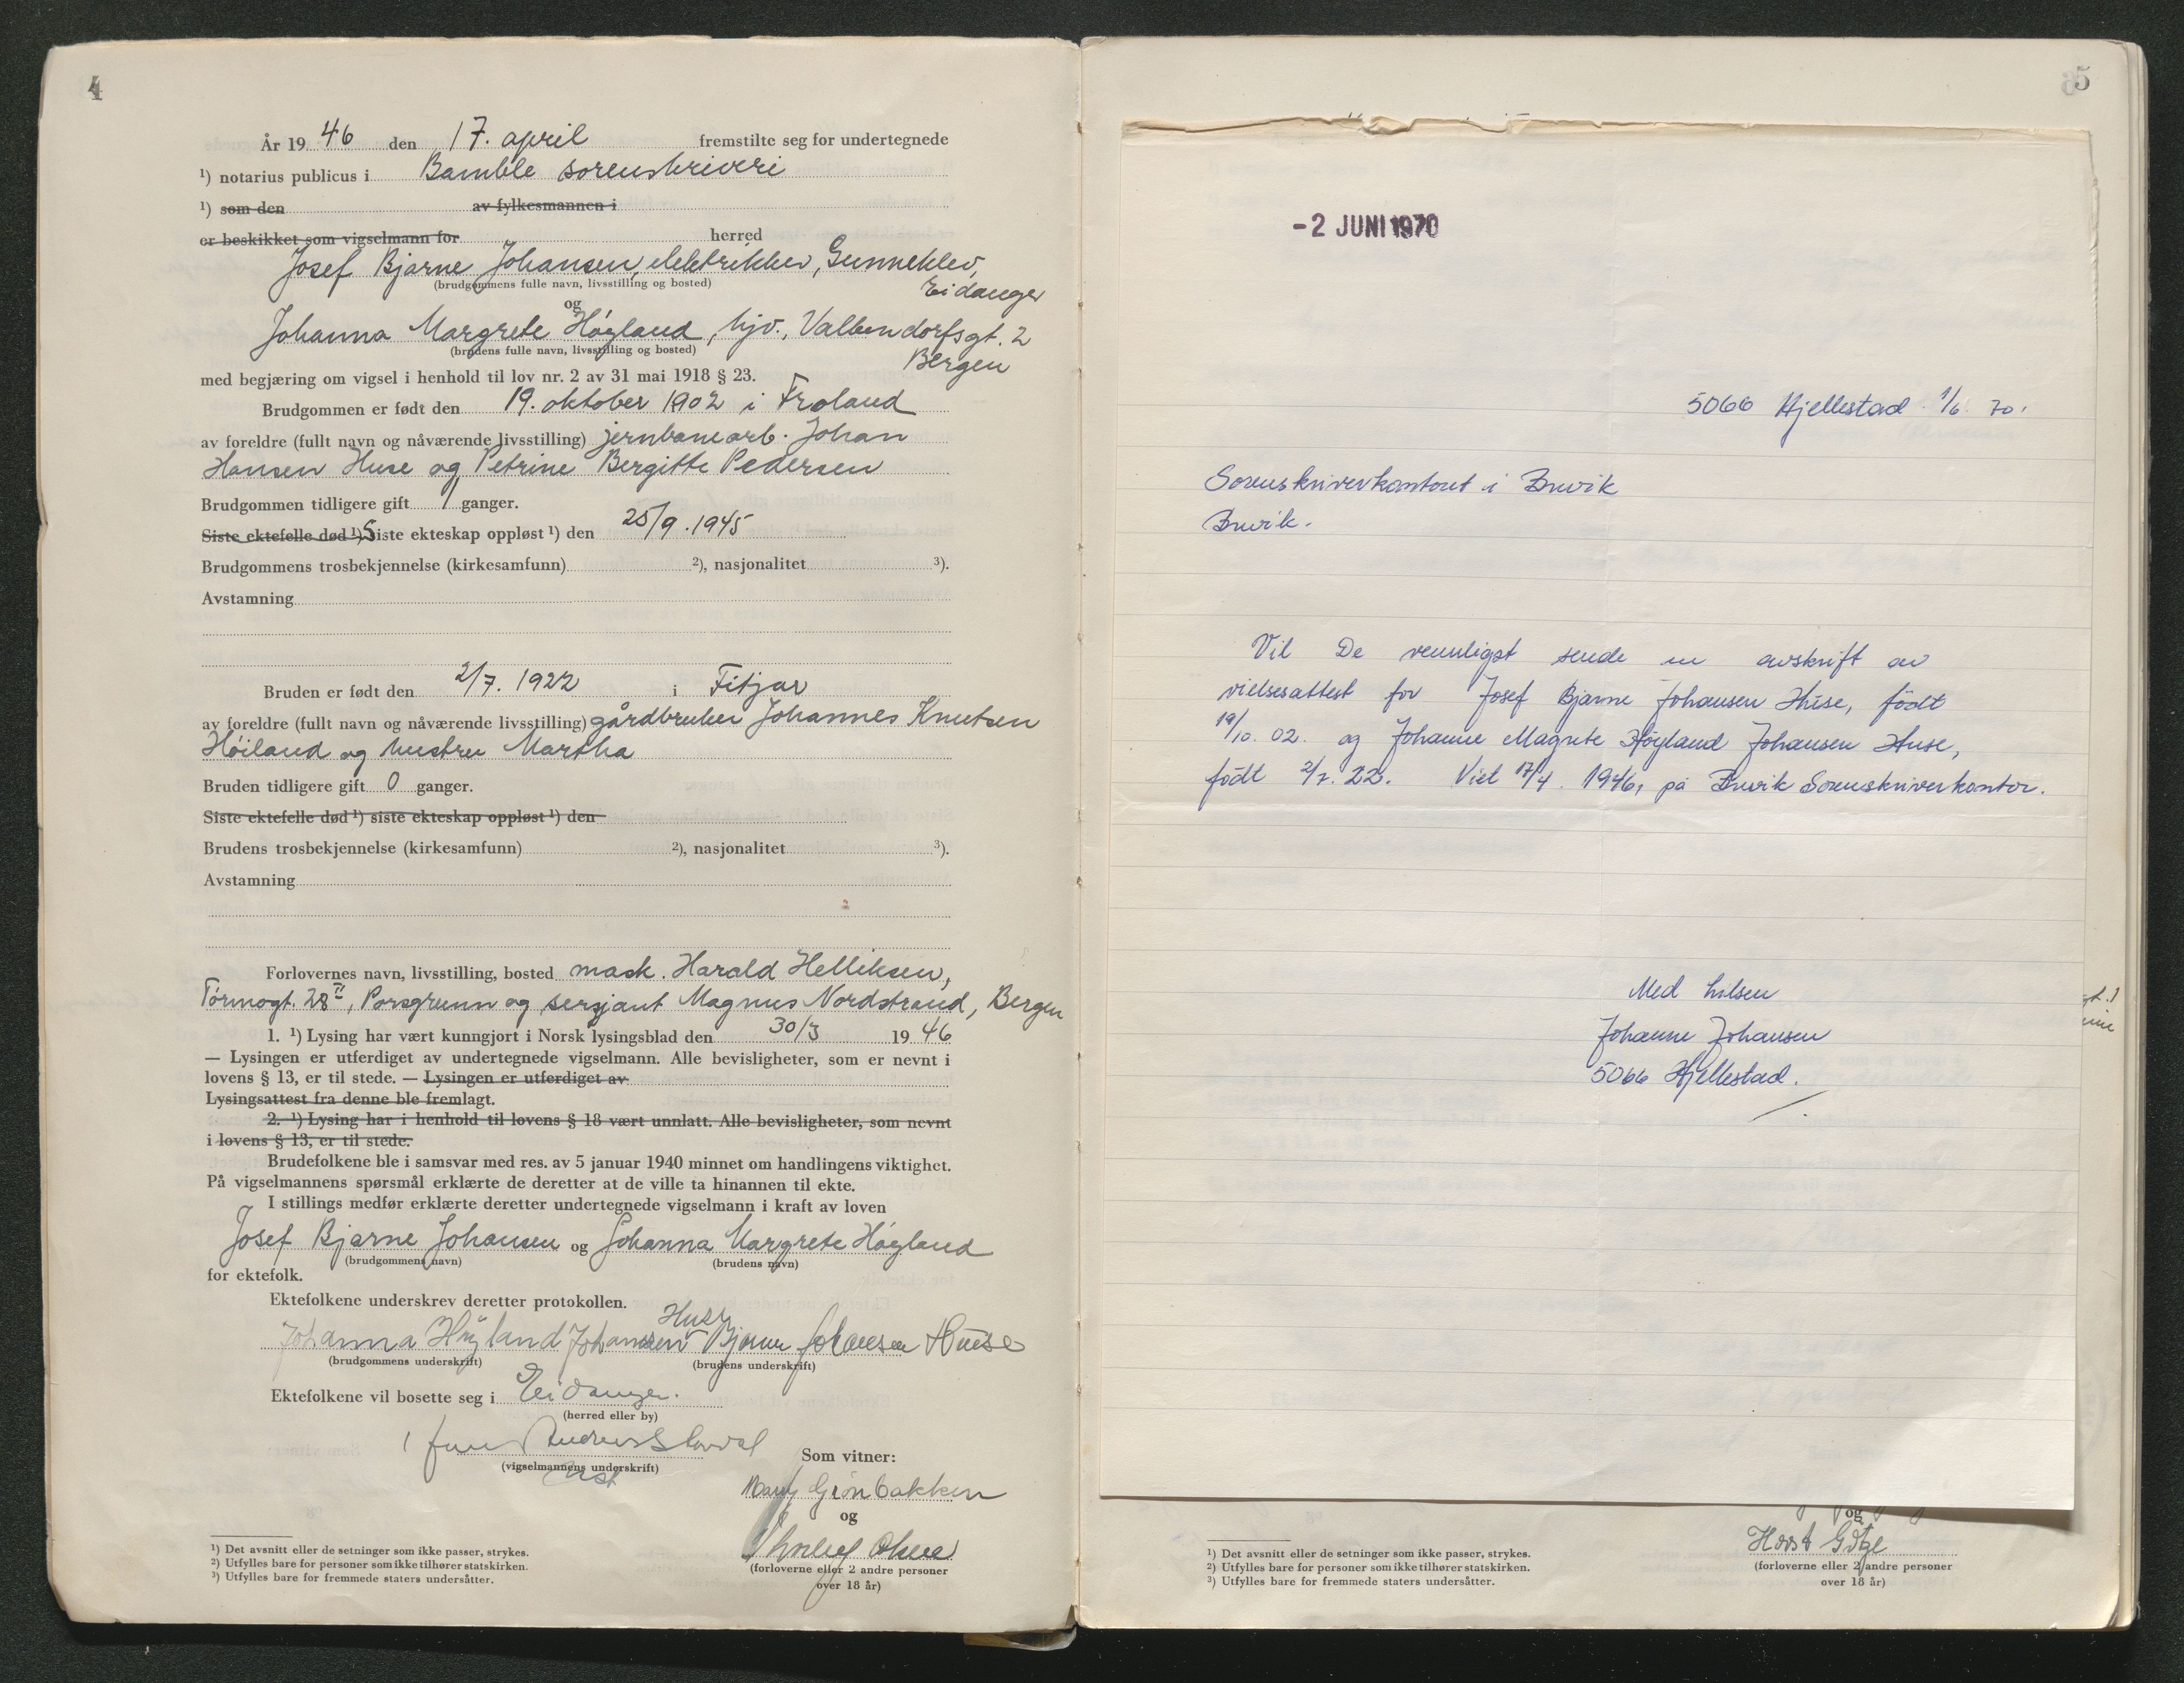 4
År 19 46 den 17. april fremstilte seg for undertegnede
¹) notarius publicus i Bamble sorenskriveri
¹) som den av fylkesmannen i
er beskikket som vigselmann for herred
Josef Bjarne Johansen, elektriker, Gunneklev,
(brudgommens fulle navn, livsstilling og bosted)
Eidanger
og
Johanna Margrete Höyland, hjv., Valkendorfsgt. 2
(brudens fulle navn, livsstilling og bosted)
Bergen
med begjæring om vigsel i henhold til lov nr. 2 av 31 mai 1918 § 23.
Brudgommen er født den 19. oktober 1902 i Froland
av foreldre (fullt navn og nåværende livsstilling) jernbanearb. Johan
Hansen Huse og Petrine Bergitte Pedersen
Brudgommen tidligere gift 1 ganger.
Siste ektefelle død ¹) Siste ekteskap oppløst ¹) den 25/9.1945
Brudgommens trosbekjennelse (kirkesamfunn) ²), nasjonalitet ³).
Avstamning
Bruden er født den 2/7. 1922 i Fitjar
av foreldre (fullt navn og nåværende livsstilling) gårdbruker Johannes Knutsen
Höiland og hustru Martha
Bruden tidligere gift 0 ganger.
Siste ektefelle død ¹) siste ekteskap oppløst ¹) den
Brudens trosbekjennelse (kirkesamfunn) ²), nasjonalitet ³).
Avstamning
Forlovernes navn, livsstilling, bosted mask. Harald Helliksen,
Tormogt. 28 II, Porsgrunn og sersjant Magnus Nordstrand, Bergen
1. ¹) Lysing har vært kunngjort i Norsk lysingsblad den 30/3 19 46
— Lysingen er utferdiget av undertegnede vigselmann. Alle bevisligheter, som er nevnt i
lovens § 13, er til stede. — Lysingen er utferdiget av
Lysingsattest fra denne ble fremlagt.
2. ¹) Lysing har i henhold til lovens § 18 vært unnlatt. Alle bevisligheter, som nevnt
i lovens § 13, er til stede.
Brudefolkene ble i samsvar med res. av 5 januar 1940 minnet om handlingens viktighet.
På vigselmannens spørsmål erklærte de deretter at de ville ta hinannen til ekte.
I stillings medfør erklærte deretter undertegnede vigselmann i kraft av loven
Josef Bjarne Johansen og Johanna Margrete Höyland
(brudgommens navn) (brudens navn)
for ektefolk.
Ektefolkene underskrev deretter protokollen.
Huse
Johanna Höyland Johansen Bjarne Johansen Huse
(brudgommens underskrift) (brudens underskrift)
Ektefolkene vil bosette seg i Eidanger.
(herred eller by)
(vigselmannens underskrift)
Som vitner:
Grönbakken
og
(forloverne eller 2 andre personer
over 18 år)
¹) Det avsnitt eller de setninger som ikke passer, strykes.
²) Utfylles bare for personer som ikke tilhører statskirken.
³) Utfylles bare for fremmede staters undersåtter.
5
-2 JUNI 1970
5066 Hjellestad 1/6. 70.
Sorenskriverkontoret i Brevik
Brevik.
Vil De vennligst sende en avskrift av
vielsesattest for Josef Bjarne Johansen Huse, födt
19/10. 02. og Johanne Magrete Höyland Johansen Huse,
födt 2/7. 22. Viet 17/4. 1946, på Brevik Sorenskriverkontor.
Med hilsen
Johanne Johansen
5066 Hjellestad.
og
Horst Götze
(forloverne eller 2 andre personer
over 18 år)
¹) Det avsnitt eller de setninger som ikke passer, strykes.
²) Utfylles bare for personer som ikke tilhører statskirken.
³) Utfylles bare for fremmede staters undersåtter.